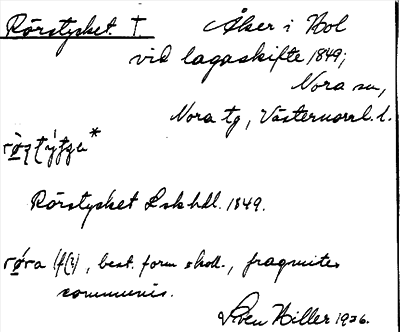 Rörstycket †. Åker i Bol
vid lagaskifte 1849;
Nora sn,
Nora tg, Västernorrl. l.
Rörstycket Lskhdl. 1849.
röra (f(?)), best. form sholl., fragmites
communis.
Sven Hiller 1936.